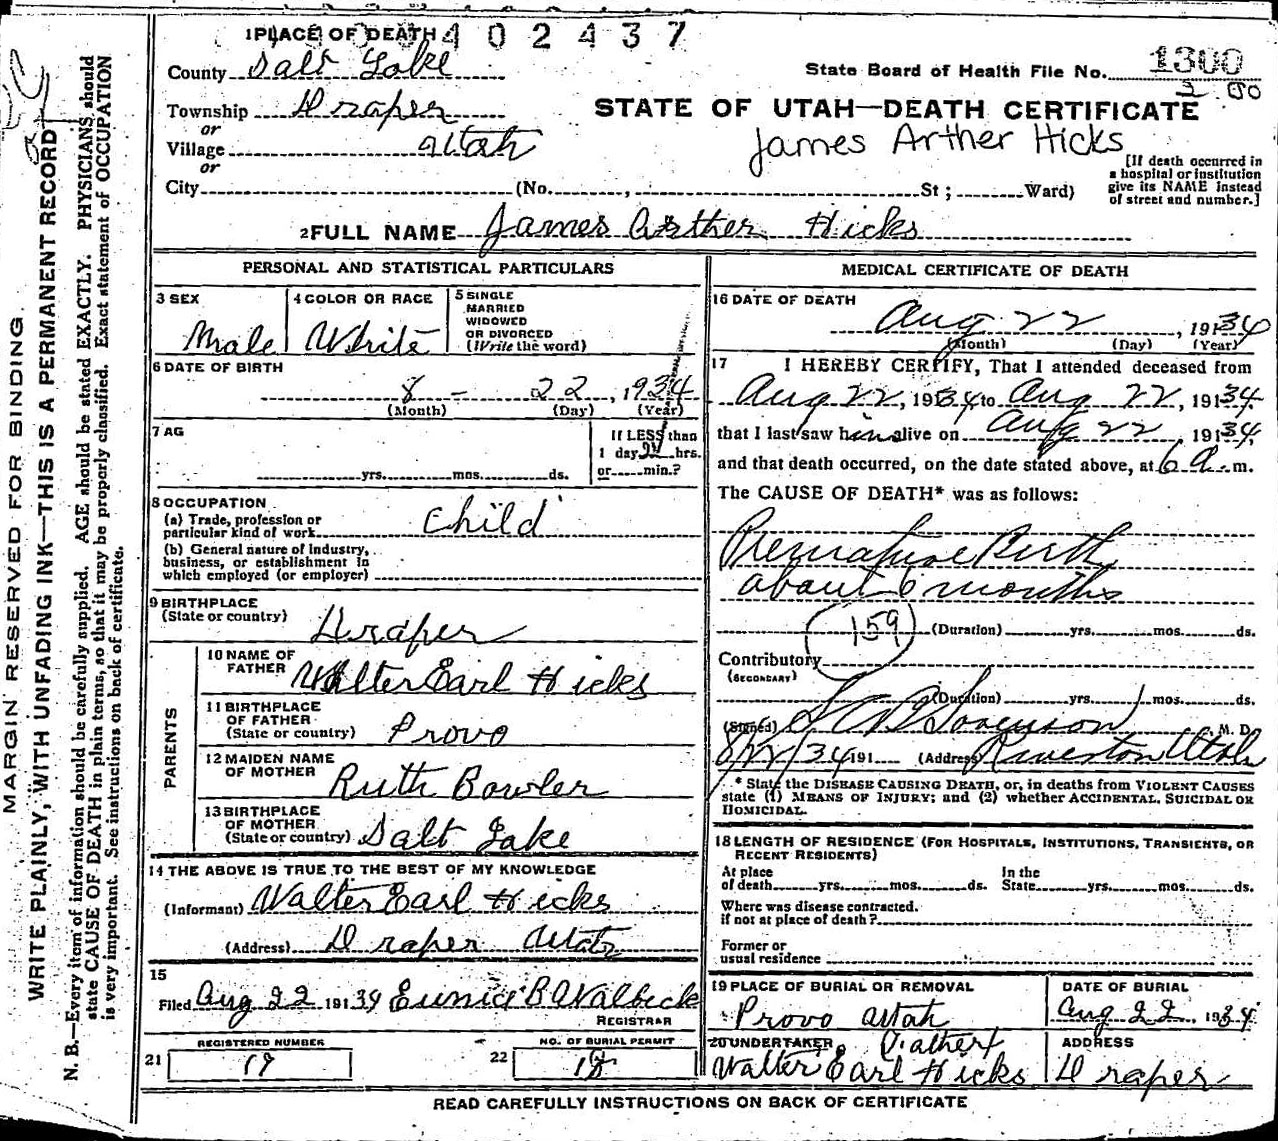 1 PLACE OF DEATH 402437
County Salt Lake
State Board of Health File No. 1300
Township Draper
or
STATE OF UTAH—DEATH CERTIFICATE
James Arther Hicks
Village Utah
or
City (No. , St ; Ward)
[If death occurred in
a hospital or institution
give its NAME instead
of street and number.]
2 FULL NAME James Arther Hicks
PERSONAL AND STATISTICAL PARTICULARS
3 SEX
Male
4 COLOR OR RACE
White
5 SINGLE
MARRIED
WIDOWED
OR DIVORCED
(Write the word)
6 DATE OF BIRTH
8 - 22, 1934
(Month) (Day) (Year)
7 AG
yrs. mos. ds.
If LESS than
1 day hrs.
or min.?
8 OCCUPATION
(a) Trade, profession or
particular kind of work Child
(b) General nature of Industry,
business, or establishment in
which employed (or employer)
9 BIRTHPLACE
(State or country) Draper
PARENTS
10 NAME OF
FATHER Walter Earl Hicks
11 BIRTHPLACE
OF FATHER
(State or country) Provo
12 MAIDEN NAME
OF MOTHER Ruth Bowler
13 BIRTHPLACE
OF MOTHER
(State or country) Salt Lake
14 THE ABOVE IS TRUE TO THE BEST OF MY KNOWLEDGE
(Informant) Walter Earl Hicks
(Address) Draper Utah
15
Filed Aug 22 191 34 Eunice B Walbeck
REGISTRAR
21 REGISTERED NUMBER
22 NO. OF BURIAL PERMIT
MEDICAL CERTIFICATE OF DEATH
16 DATE OF DEATH
Aug 22, 191 34
(Month) (Day) (Year)
17 I HEREBY CERTIFY, That I attended deceased from
Aug 22, 191 34 to Aug 22, 191 34.
that I last saw him alive on Aug 22, 191 34,
and that death occurred, on the date stated above, at 6 a. m.
The CAUSE OF DEATH* was as follows:
Premature Birth
about 6 months
159 (Duration) yrs. mos. ds.
Contributory
(SECONDARY)
(Duration) yrs. mos. ds.
(Signed) Sorenson, M. D.
8/22/34 191 (Address) Riverton Utah
* State the DISEASE CAUSING DEATH, or, in deaths from VIOLENT CAUSES
state (1) MEANS OF INJURY; and (2) whether ACCIDENTAL, SUICIDAL OR
HOMICIDAL.
18 LENGTH OF RESIDENCE (FOR HOSPITALS, INSTITUTIONS, TRANSIENTS, OR
RECENT RESIDENTS)
At place
of death yrs. mos. ds.
In the
State yrs. mos. ds.
Where was disease contracted.
if not at place of death?
Former or
usual residence
19 PLACE OF BURIAL OR REMOVAL
Provo Utah
DATE OF BURIAL
Aug 22, 19 34
20 UNDERTAKER (Father)
Walter Earl Hicks
ADDRESS
Draper
READ CAREFULLY INSTRUCTIONS ON BACK OF CERTIFICATE
MARGIN RESERVED FOR BINDING.
WRITE PLAINLY, WITH UNFADING INK—THIS IS A PERMANENT RECORD
N. B.—Every item of information should be carefully supplied. AGE should be stated EXACTLY. PHYSICIANS should
state CAUSE OF DEATH in plain terms, so that it may be properly classified. Exact statement of OCCUPATION
is very important. See instructions on back of certificate.